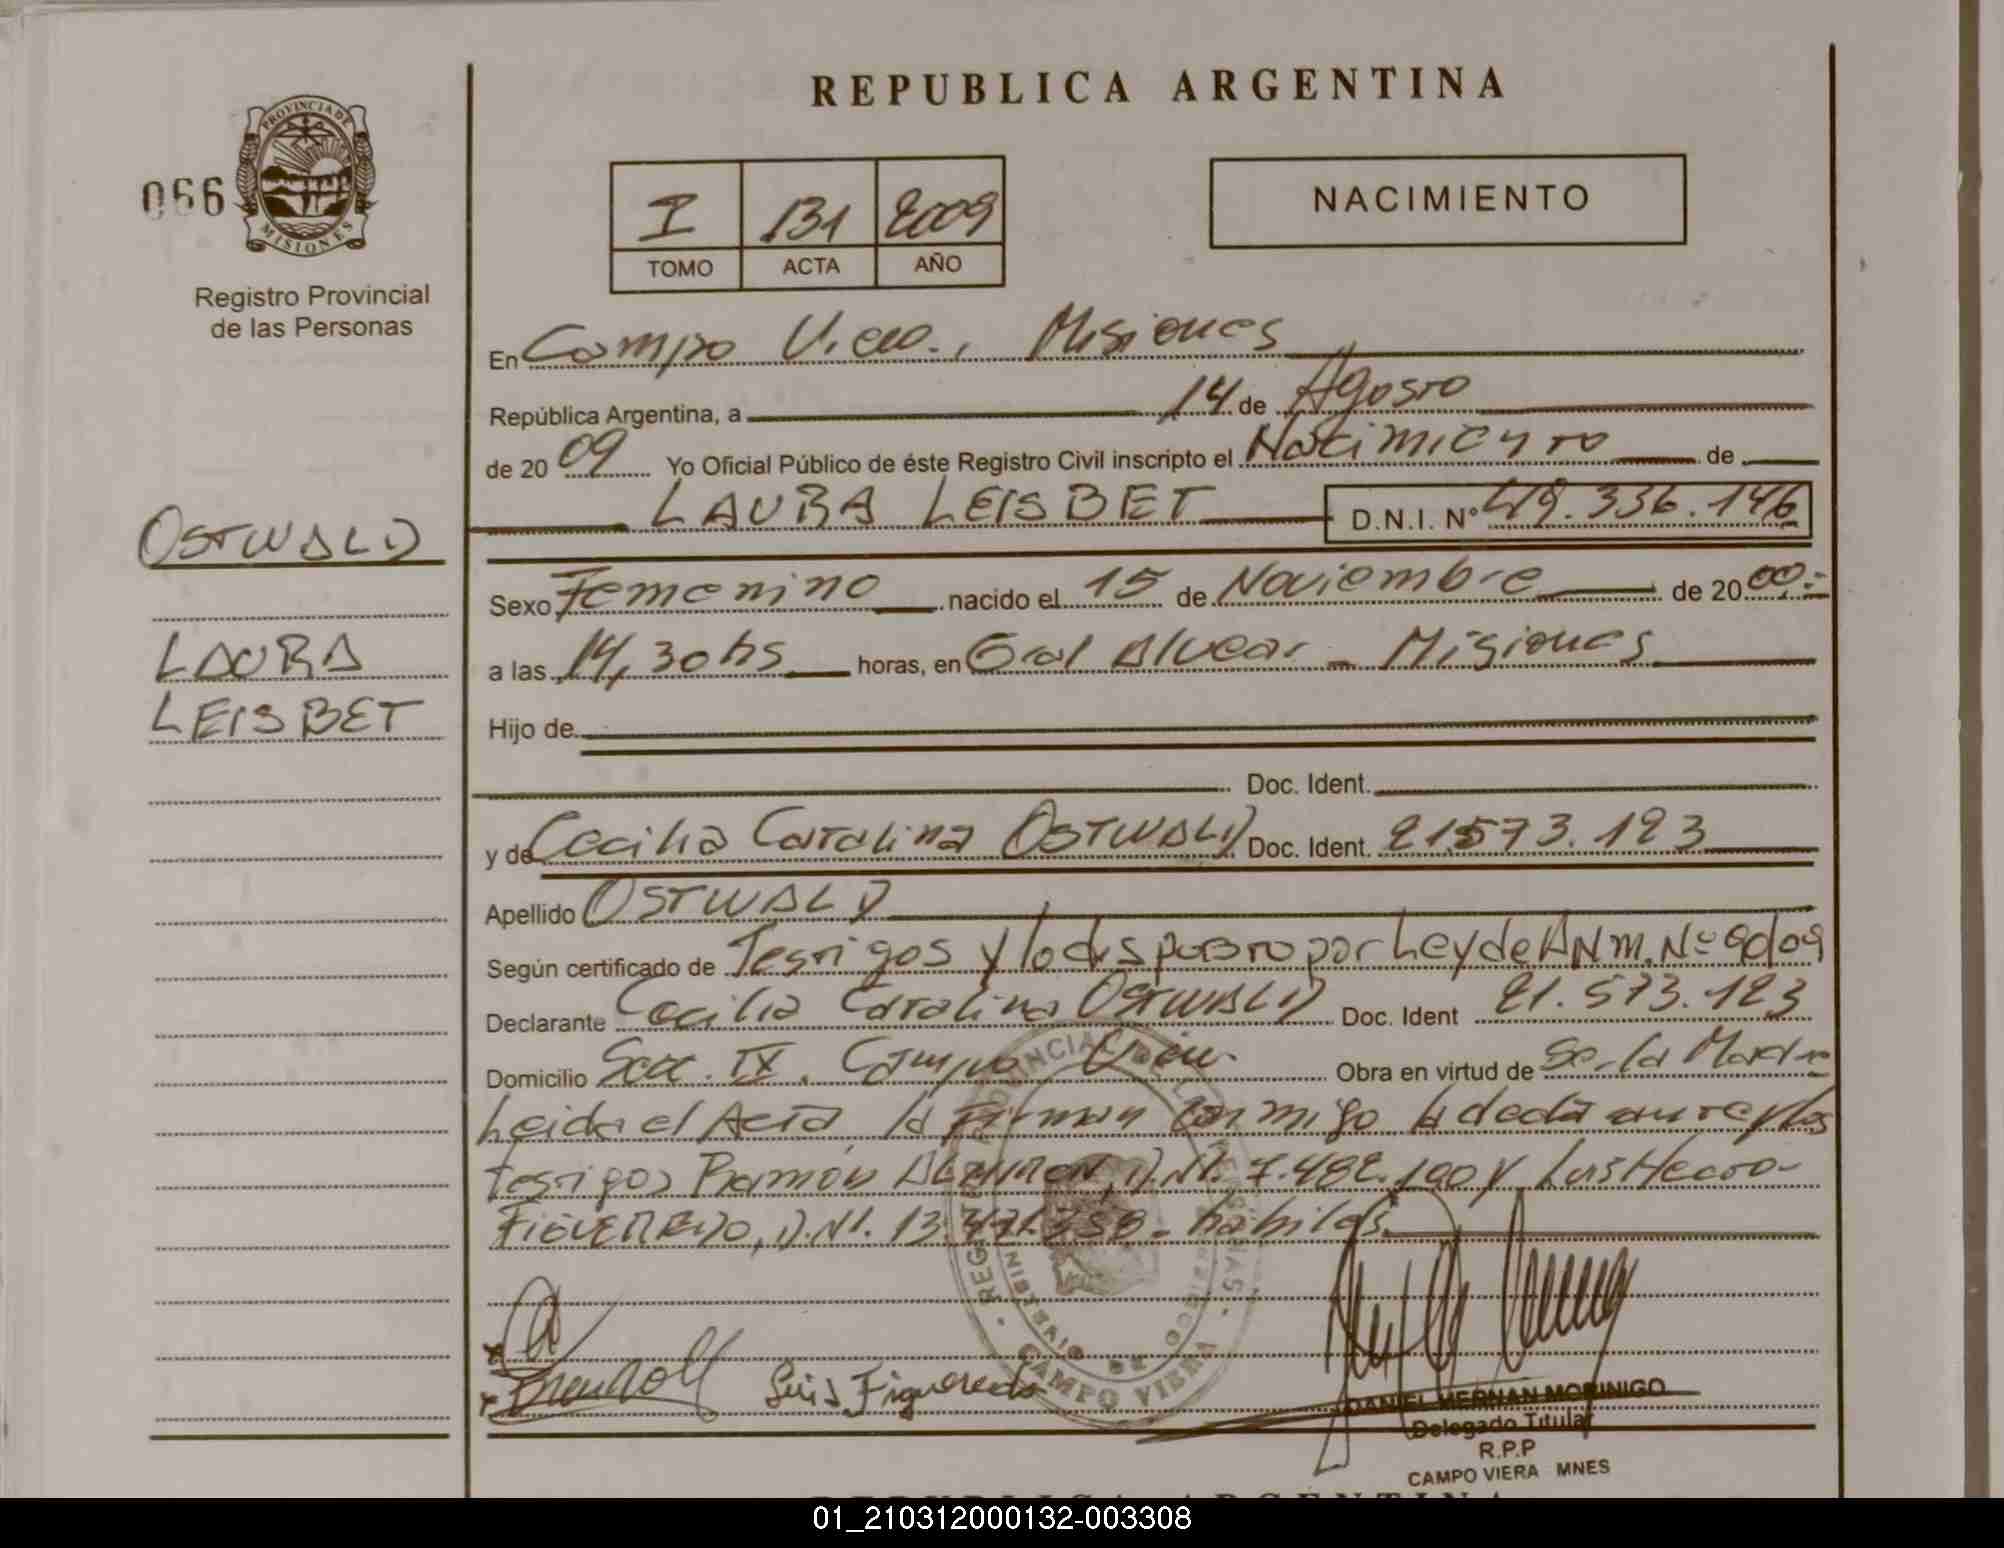 REPUBLICA ARGENTINA
PROVINCIA DE
MISIONES
066
Registro Provincial
de las Personas
I 131 2009
TOMO ACTA AÑO
NACIMIENTO
En Campo Viera, Misiones
República Argentina, a 14 de Agosto
de 2009 Yo Oficial Público de éste Registro Civil inscripto el Nacimiento de
LAURA LEISBET D.N.I. Nº 49.336.146
OSTWALD
LAURA
LEISBET
Sexo Femenino nacido el 15 de Noviembre de 2000.-
a las 14,30 hs horas, en Gral Alvear - Misiones
Hijo de
Doc. Ident.
y de Cecilia Carolina OSTWALD Doc. Ident. 21.573.123
Apellido OSTWALD
Según certificado de Testigos y lo dispuesto por Ley de A.N.M. Nº
Declarante Cecilia Carolina OSTWALD Doc. Ident 21.573.123
Domicilio Secc. IX. Campo Viera. Obra en virtud de Ser la Madre
Leida el Acta, la Firman Conmigo la declarante y los
testigos Ramón D.NI. 7.482.190 y Luis Hector
FIGUEREDO, D.NI. 13. - habiles.
Luis Figueredo
CAMPO VIERA
DANIEL HERNAN MORINIGO
Delegado Titular
R.P.P
CAMPO VIERA MNES
REPUBLICA ARGENTINA
01_210312000132-003308